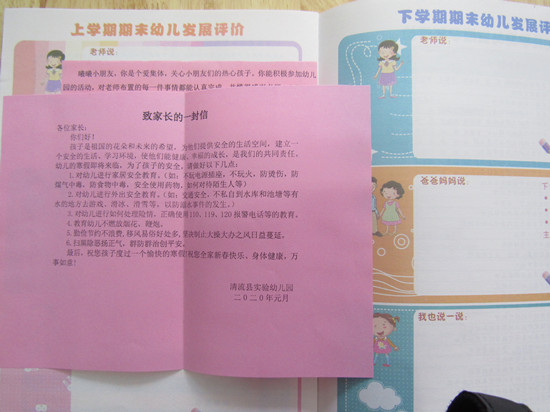 上学期期末幼儿发展评价
老师说：
曦曦小朋友，你是个爱集体、关心小朋友们的热心孩子。你能积极参加幼儿
园的活动，对老师布置的每一件事情都能认真完成，
致家长的一封信
各位家长：
你们好！
孩子是祖国的花朵和未来的希望，为他们提供安全的生活空间，建立一
个安全的生活、学习环境，使他们能健康、幸福的成长，是我们的共同责任。
幼儿的寒假即将来临，为了孩子的安全，请做好以下几点：
1.对幼儿进行家居安全教育，（如：不玩电源插座，不玩火，防烫伤，防
煤气中毒，防食物中毒，安全使用药物，如何对待陌生人等）
2.对幼儿进行外出安全教育。（如：交通安全，不私自到水库和池塘等有
水的地方去游戏、滑冰、滑雪等，以防溺水事件的发生。）
3.对幼儿进行如何处理险情，正确使用110、119、120报警电话等的教育。
4.教育幼儿不燃放烟花、鞭炮。
5.勤俭节约不浪费，移风易俗好处多，坚决制止大操大办之风日益蔓延。
6.扫黑除恶扬正气，群防群治创平安。
最后，祝您孩子度过一个愉快的寒假！祝您全家新春快乐、身体健康、万
事如意！
清流县实验幼儿园
二〇二〇年元月
下学期期末幼儿发展评
老师说：
爸爸妈妈说：
我也说一说：